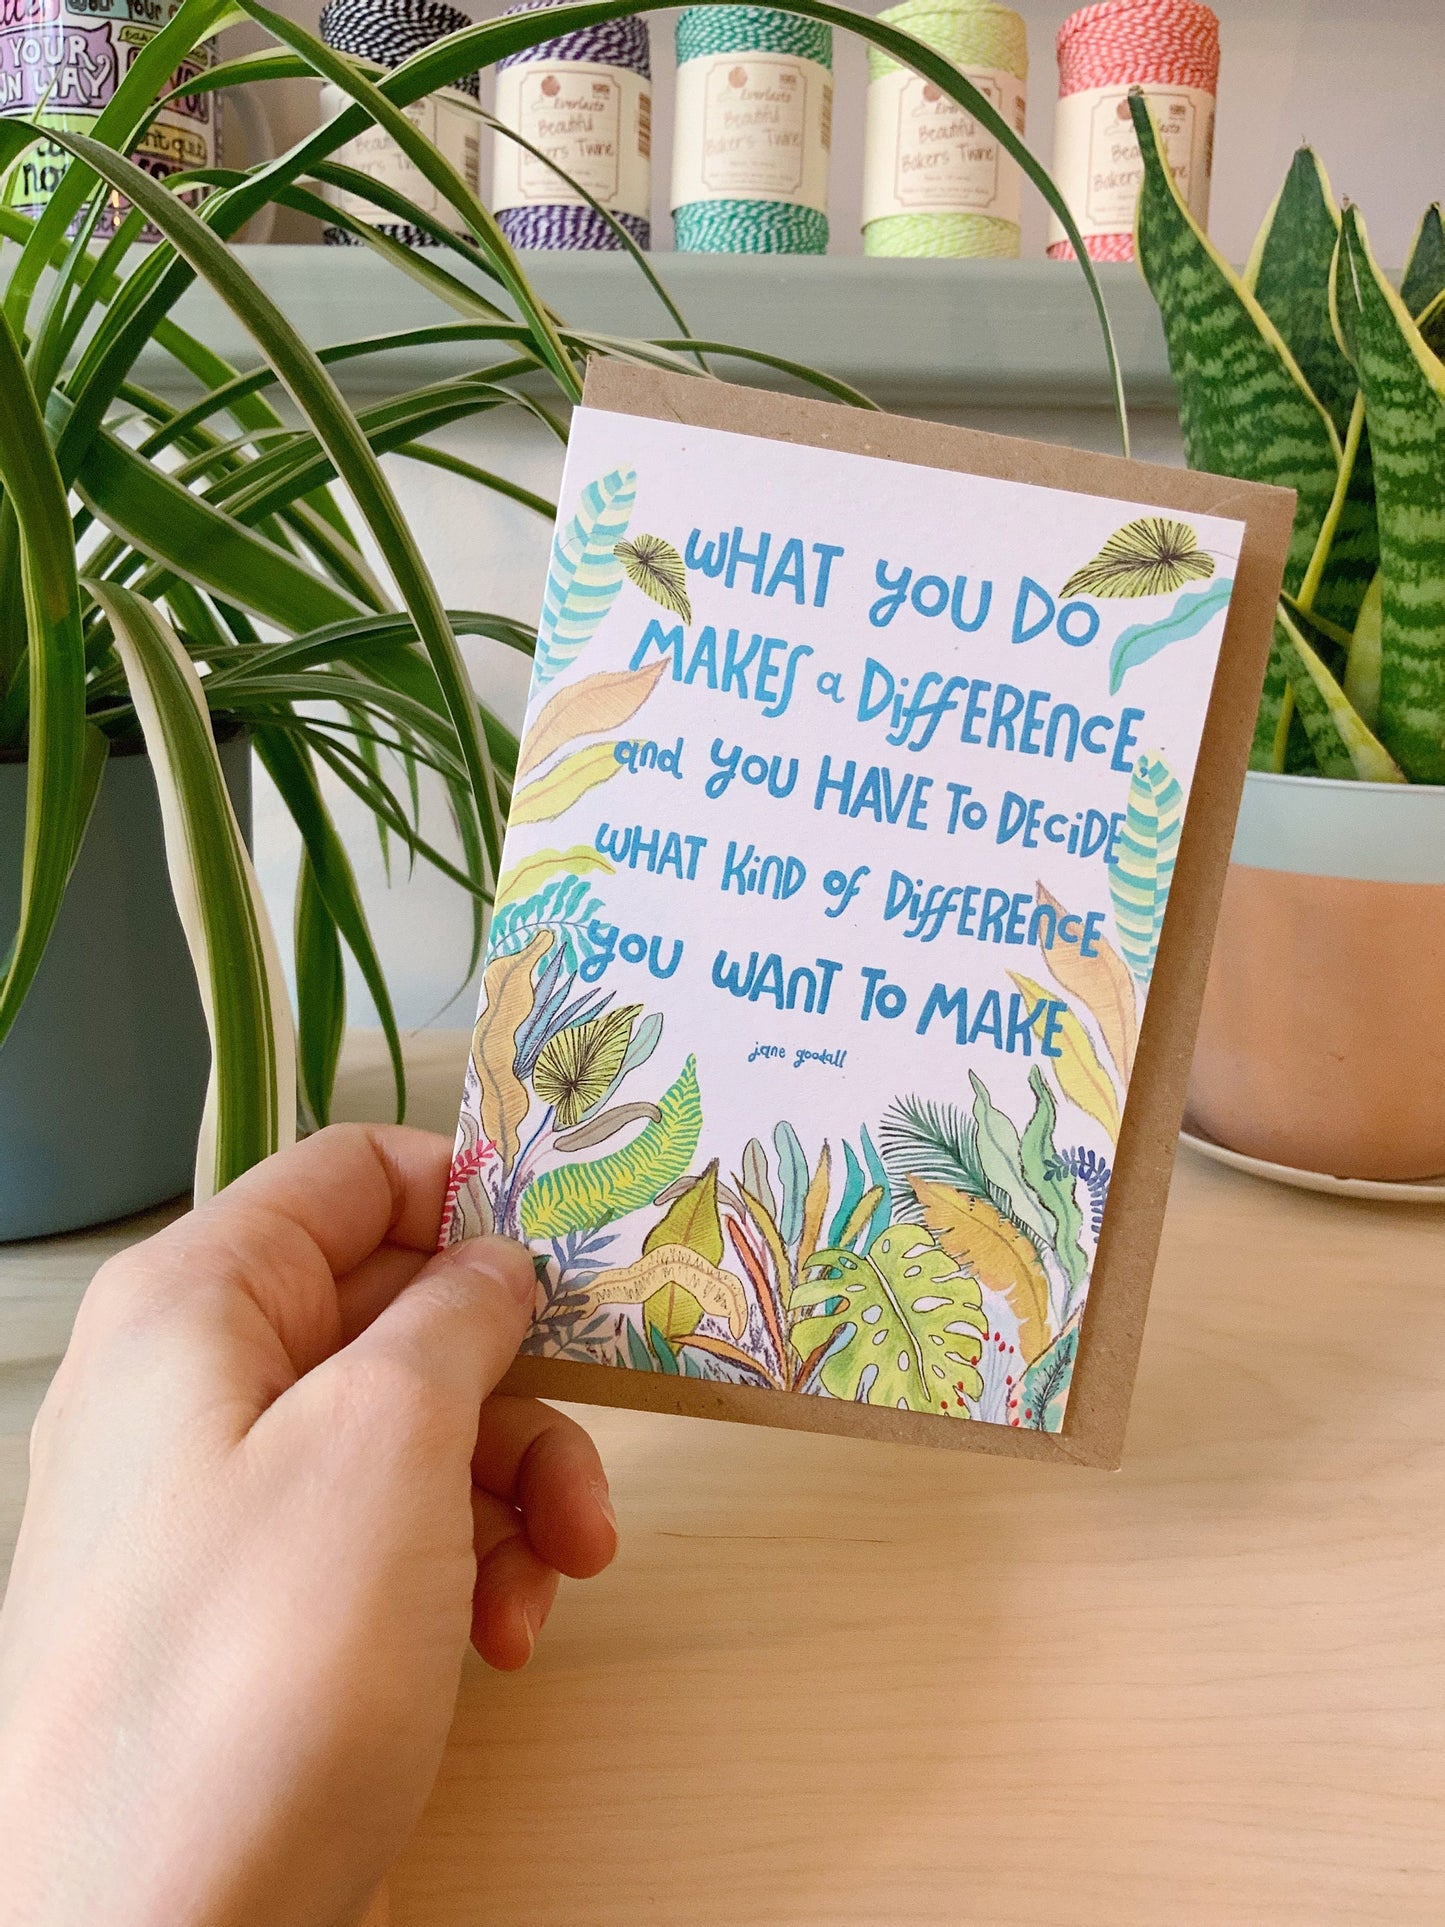 YOUR
WN WAY
not
Everlasto
Beautiful
Bakers Twine
Everlasto
Beautiful
Bakers Twine
Everlasto
Beautiful
Bakers Twine
Bakers
WHAT you DO
MAKES a DiffERENCE,
and you HAVE To DECiDE
WHAT KiND of DiffERENCE
you WANT To MAKE
jane goodall